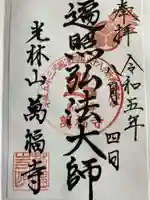 奉拝
令和五年
八月四日
遍照弘法大師
光林山萬福寺